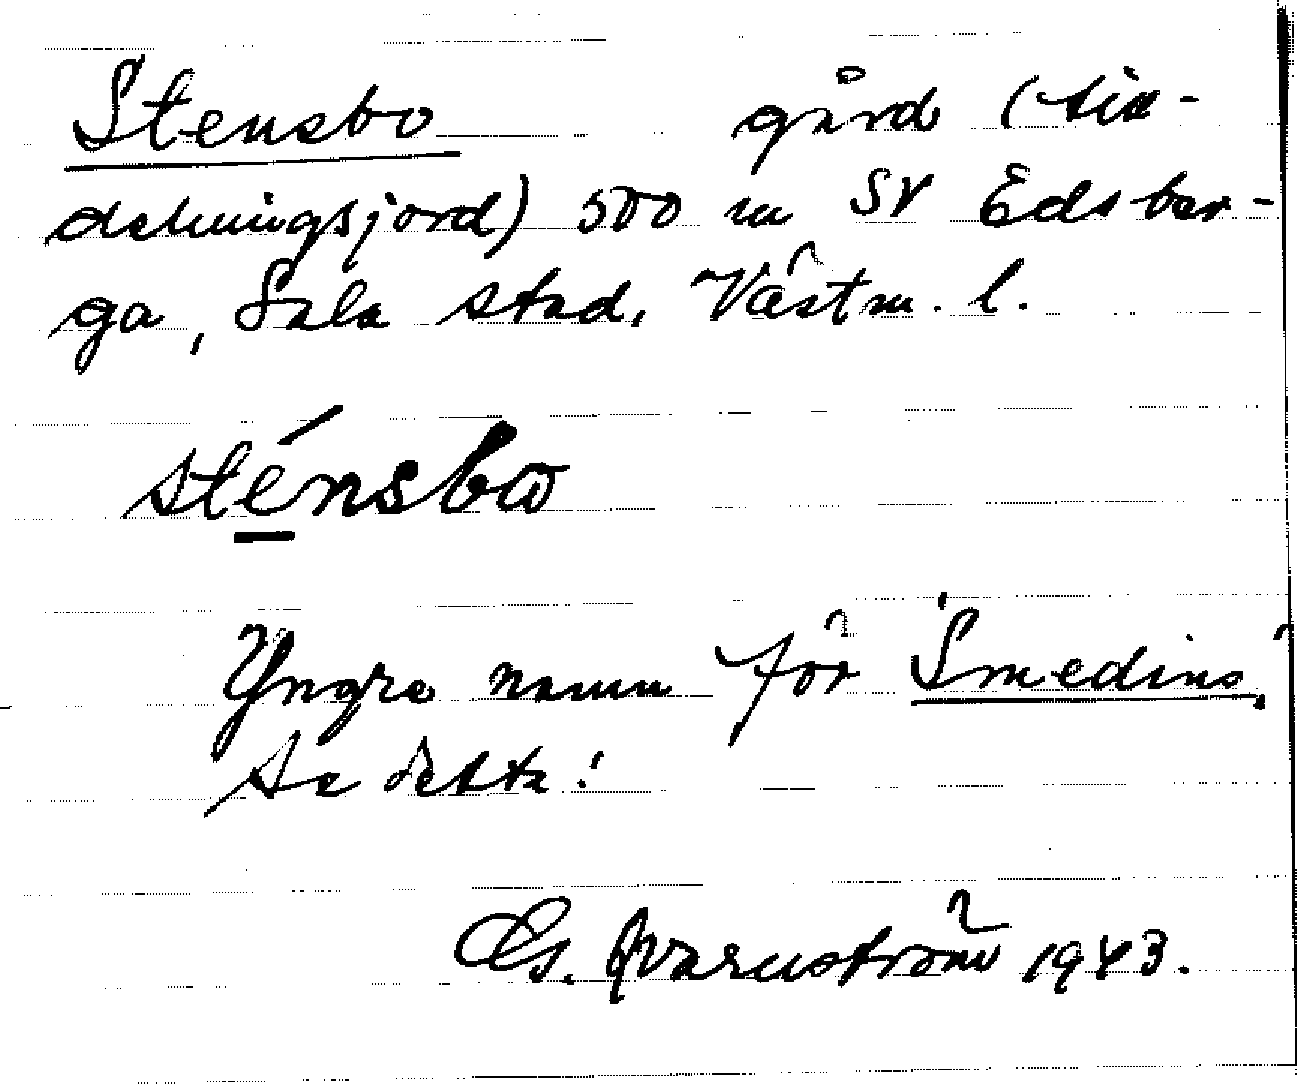 Stensbo gård (tin-
delningsjord) 500 m SV Edsber-
ga, Sala stad, Västm. l.
sténsbω
Yngre namn för Smedins.
Se detta!
Qvarnström 1943.